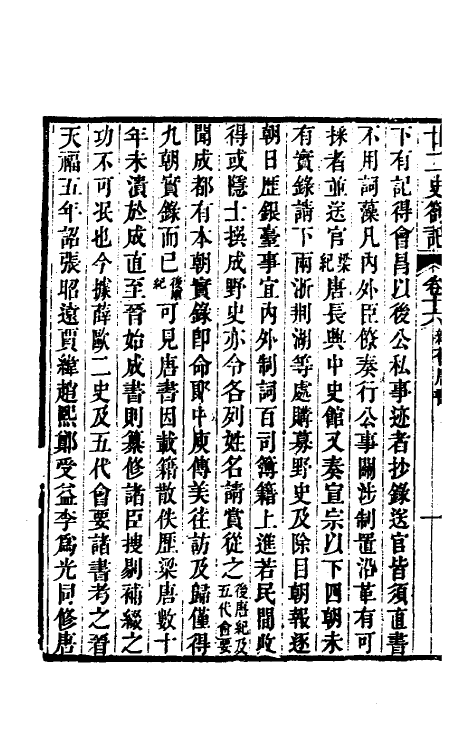 廿二史劄記 卷十六 新舊唐書 一
下有記得會昌以後公私事迹者抄錄送官皆須直書
不用詞藻凡內外臣僚奏行公事關涉制置沿革有可
採者並送官梁紀唐長興中史館又奏宣宗以下四朝未
有實錄請下兩浙荆湖等處購募野史及除目朝報逐
朝日歷銀臺事宜內外制詞百司簿籍上進若民間收
得或隱士撰成野史亦令各列姓名請賞從之後唐紀及五代會要
聞成都有本朝實錄卽命郞中庾傳美往訪及歸僅得
九朝實錄而已後唐紀可見唐書因載籍散佚歷梁唐數十
年未潰於成直至晉始成書則纂修諸臣搜剔補綴之
功不可泯也今據薛歐二史及五代會要諸書考之晉
天福五年詔張昭遠賈緯趙熙鄭受益李爲光同修唐